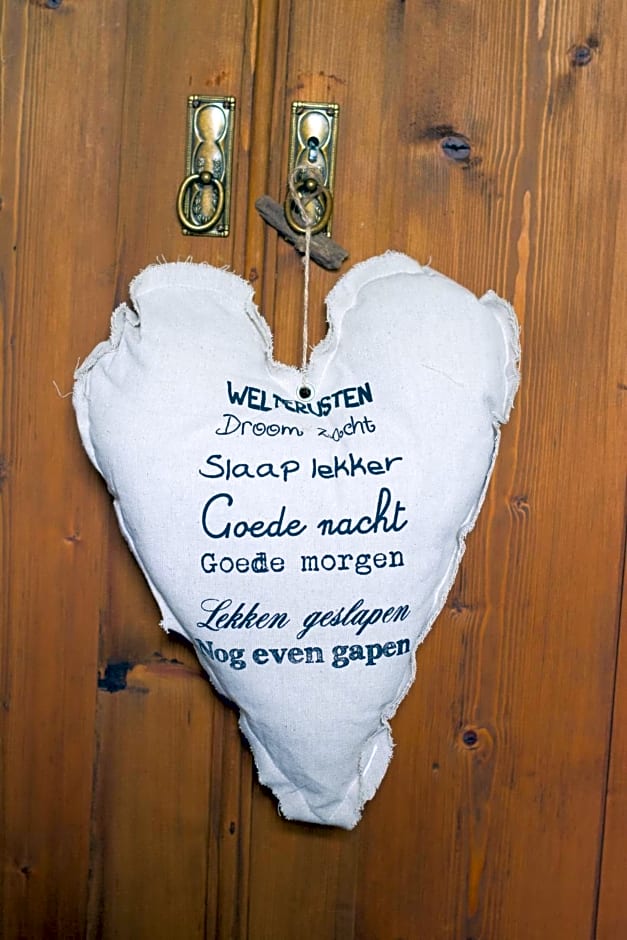 WELTERUSTEN
Droom zacht
Slaap lekker
Goede nacht
Goede morgen
Lekker geslapen
Nog even gapen